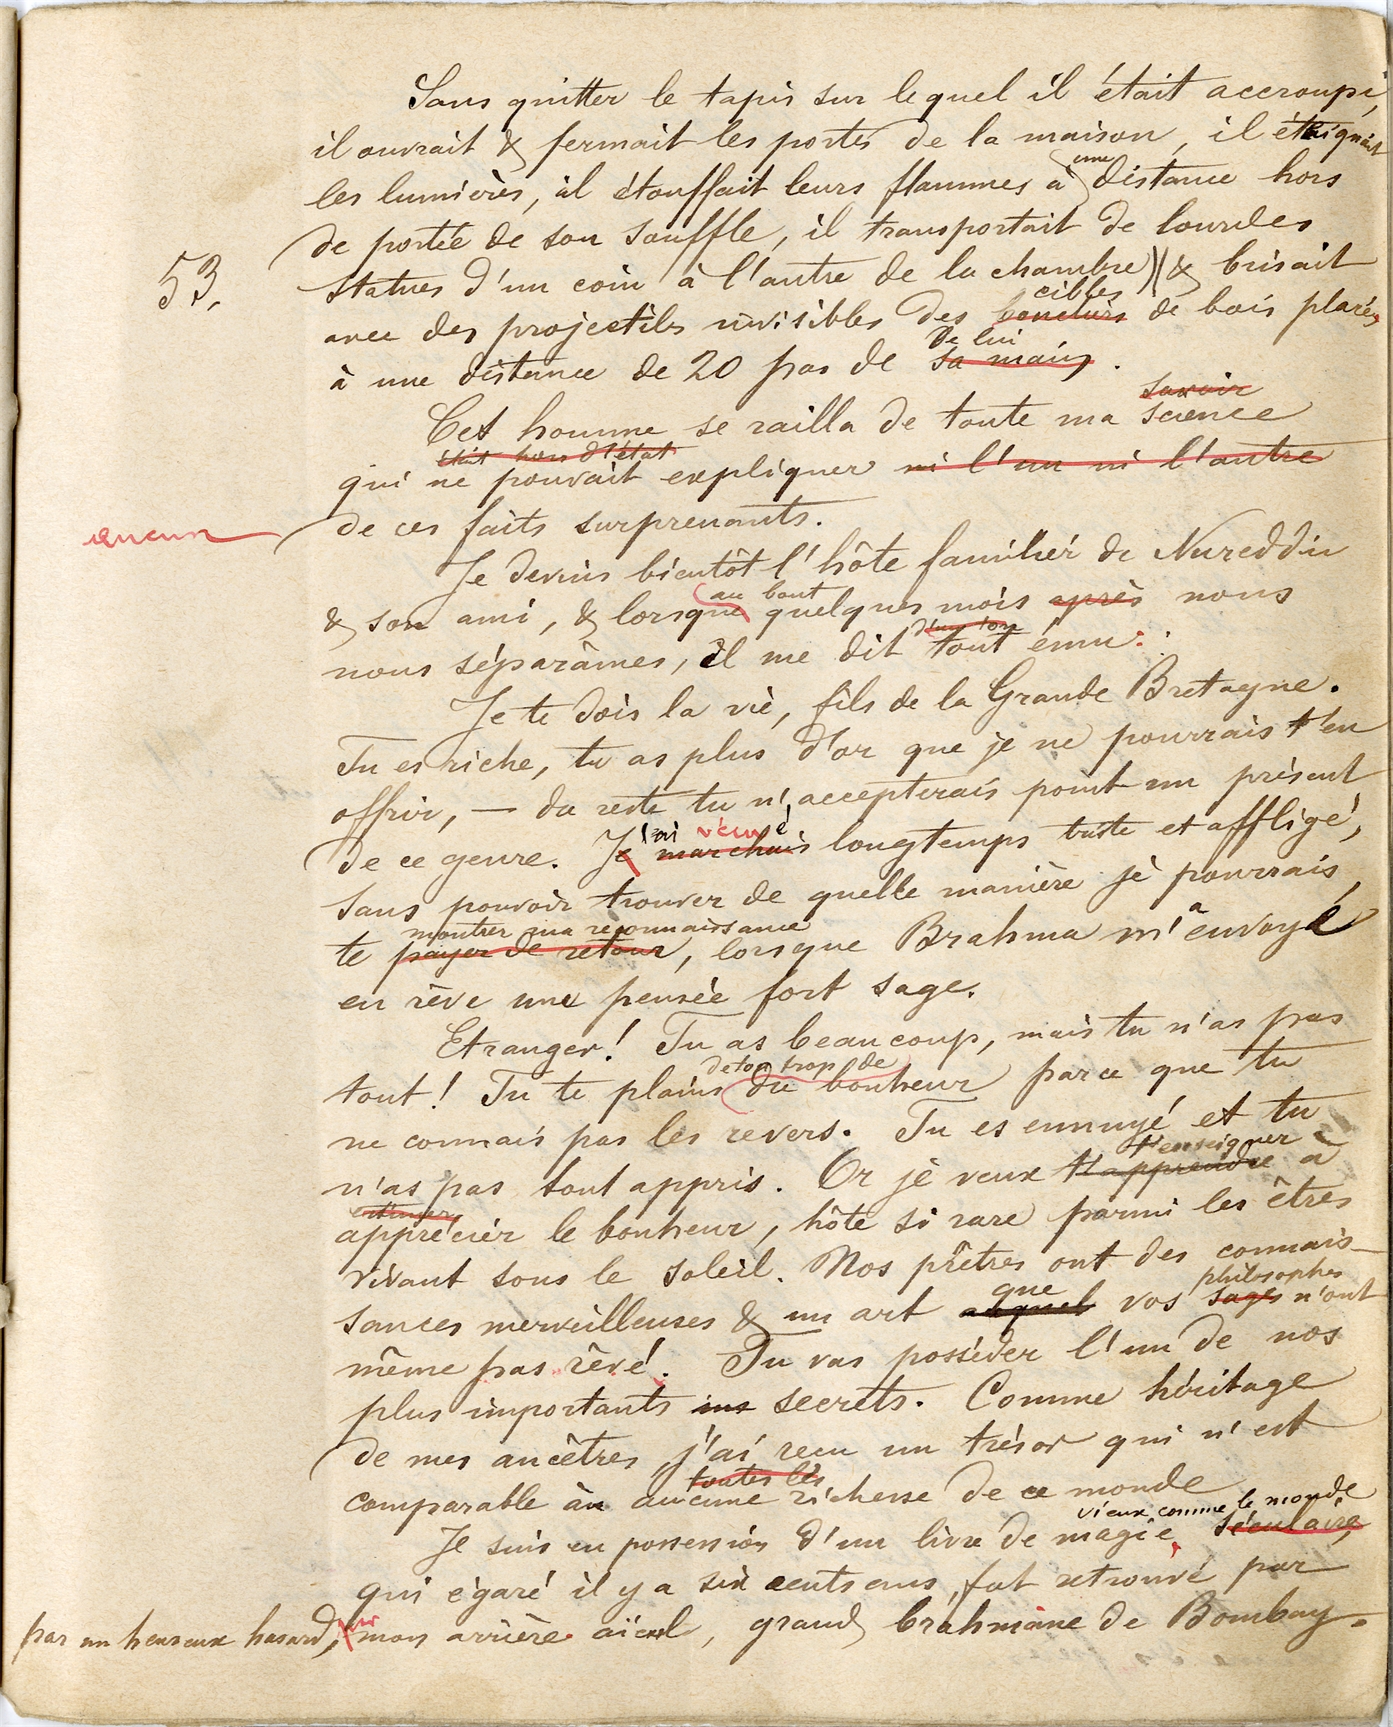 Sans quitter le tapis sur lequel il était accroupi,
il ouvrait & fermait les portes de la maison, il éteignait
une
les lumières, il étouffait leurs flammes à distance hors
de portée de son souffle, il transportait de lourdes
53.
statues d'un coin à l'autre de la chambre) & brisait
cibles
avec des projectiles invisibles des boucliers de bois placés
de lui
à une distance de 20 pas de sa main.
savoir
Cet homme se railla de toute ma science
était hors d'état
qui ne pouvait expliquer ni l'un ni l'autre
aucun
de ces faits surprenants.
Je devins bientôt l'hôte familier de Nureddin
au bout
& son ami, & lorsque quelques mois après nous
nous séparâmes, il me dit tout ému:
Je te dois la vie, fils de la Grande Bretagne.
Tu es riche, tu as plus d'or que je ne pourrais t'en
offrir, — du reste tu n'accepterais point un présent
'ai vécu
de ce genre. Je marchais longtemps triste et affligé,
sans pouvoir trouver de quelle manière je pourrais,
montrer ma reconnaissance
te payer de retour, lorsque Brahma m'a envoyé
en rêve une pensée fort sage.
Etranger! Tu as beaucoup, mais tu n'as pas
de ton trop de
tout! Tu te plains du bonheur parce que tu
ne connais pas les revers. Tu es ennuyé et tu
t'enseigner
n'as pas tout appris. Or je veux t'apprendre à
estimer
apprécier le bonheur, hôte si rare parmi les êtres
vivant sous le soleil. Nos prêtres ont des connais-
que philosophes
sances merveilleuses & un art auquel vos sages n'ont
même pas rêvé. Tu vas posséder l'un de nos
plus importants secrets. Comme héritage
de mes ancêtres j'ai reçu un trésor qui n'est
toutes les
comparable à aucune richesse de ce monde
vieux comme le monde
Je suis en possession d'un livre de magie, séculaire,
qui égaré il y a six cents ans, fut retrouvé par
par un heureux hasard, par mon arrière aïeul, grand brahmane de Bombay.